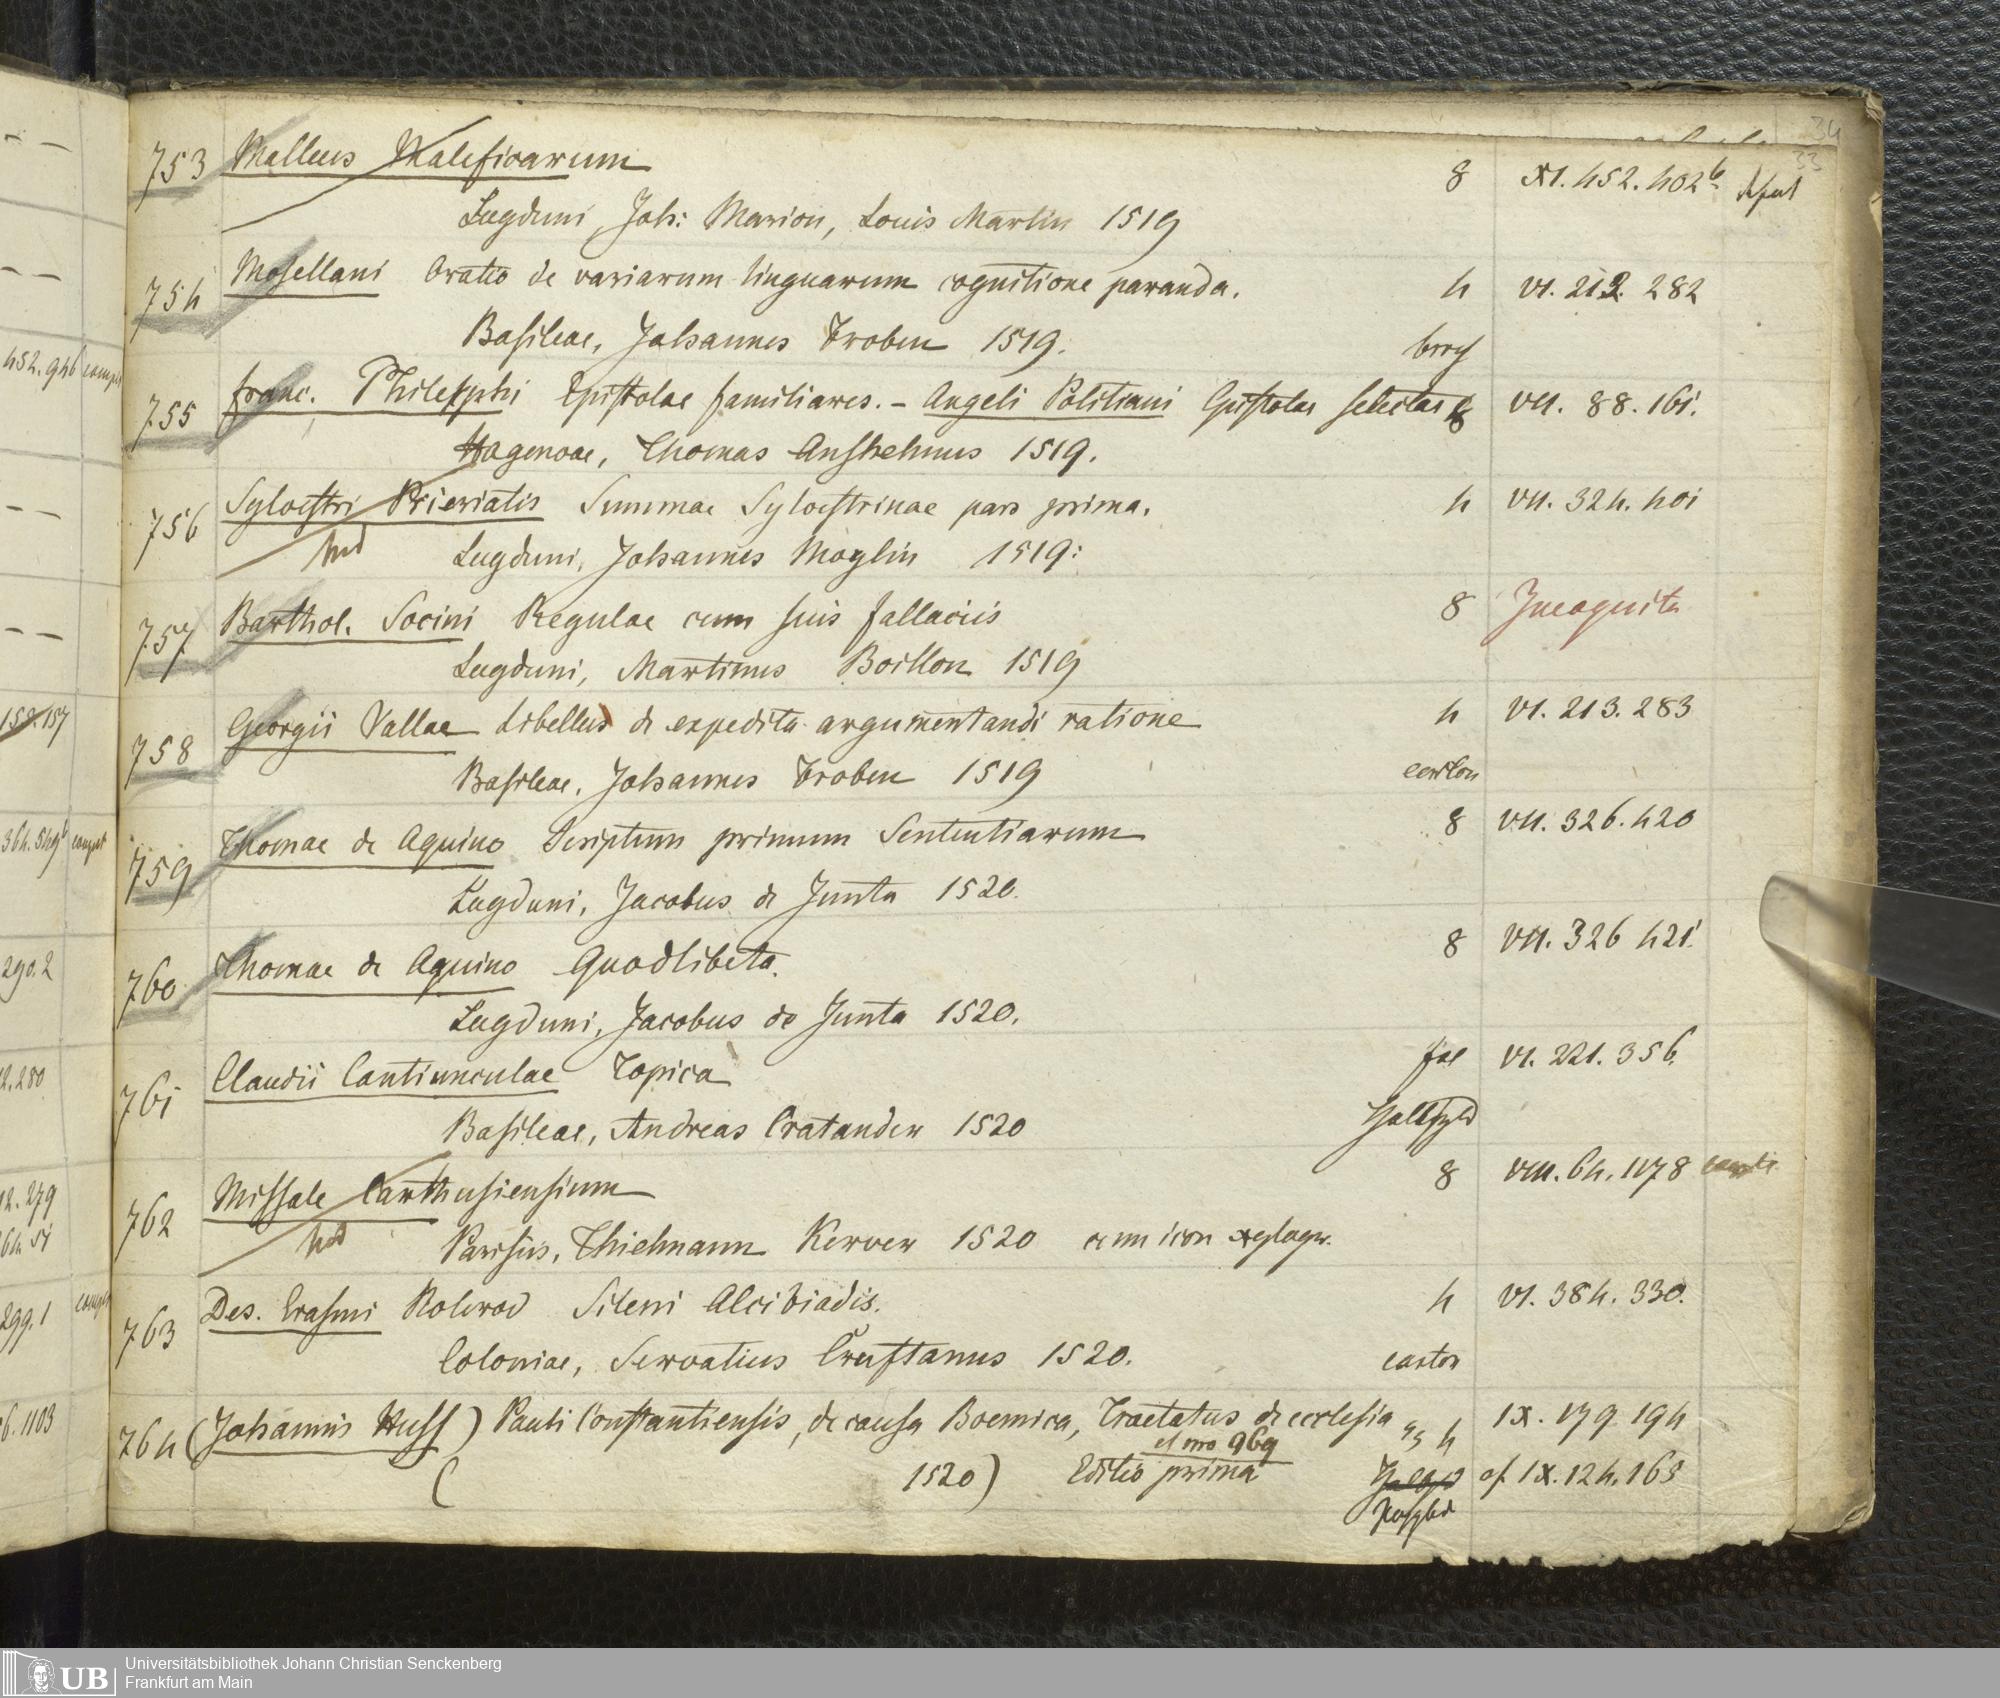 34
33
753 Malleus Maleficarum 8 XI. 452. 402b
Lugduni, Joh: Marion, Louis Martin 1519
754 Mosellani Oratio de variarum linguarum cognitione paranda. 4 VI. 212. 282
Basileae, Johannes Froben 1519. broch
755 Franc. Philelphi Epistolae familiares. – Angeli Politiani Epistolae selectae 8 VII. 88. 161.
Hagenoae, Thomas Anshelmus 1519.
756 Sylvestri Prieriatis Summae Sylvestrinae pars prima. 4 VII. 324. 401
Lugduni, Johannes Moylin 1519:
757 Barthol. Socini Regulae cum suis fallaciis 8 Incognita
Lugduni, Martinus Boillon 1519
758 Georgii Vallae Libellus de expedita argumentandi ratione 4 VI. 213. 283
Basileae, Johannes Froben 1519 carton
759 Thomae de Aquino Scriptum primum Sententiarum 8 VII. 326. 420
Lugduni, Jacobus de Junta 1520.
760 Thomae de Aquino Quodlibeta. 8 VII. 326 421.
Lugduni, Jacobus de Junta 1520.
761 Claudii Cantiunculae Topica fol VI. 221. 356.
Basileae, Andreas Cratander 1520
762 Missale Carthusiensium 8 VIII. 64. 1178
Parisiis, Thielmann Kerver 1520 cum icon xylogr.
763 Des. Erasmi Roterod Sileni Alcibiadis. 4 VI. 384. 330.
Coloniae, Servatius Cruftanus 1520. carton
764 (Johannis Huss) Pauli Constantiensis, de causa Boemica, Tractatus de ecclesia 4 IX. 179 194
cf nro 969
( 1520) Editio prima cf. IX. 124. 165
452. 946
152. 157
364. 549
290. 2
12. 280
12. 279
299. 1
6. 1103
UB Universitätsbibliothek Johann Christian Senckenberg
Frankfurt am Main